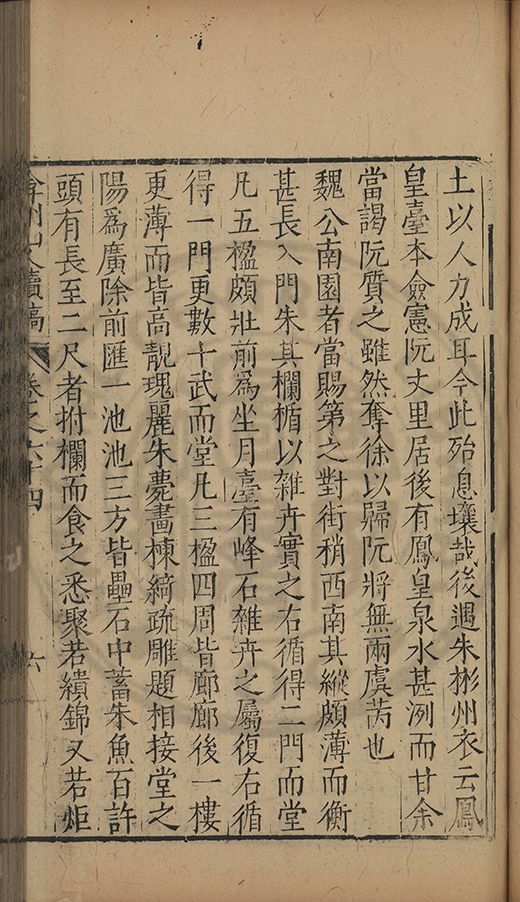 土以人力成耳今此殆息壤哉後遇朱彬州衣云鳳
皇臺本僉憲阮丈里居後有鳳皇泉水甚洌而甘余
當謁阮質之雖然奪徐以歸阮將無兩虞芮也
魏公南園者當賜第之對街稍西南其縱頗薄而衡
甚長入門朱其欄楯以雜卉實之右循得二門而堂
凡五楹頗壯前爲坐月臺有峰石雜卉之屬復右循
得一門更數十武而堂凡三楹四周皆廊廊後一樓
更薄而皆高靚瑰麗朱甍畫棟綺疏雕題相接堂之
陽爲廣除前匯一池池三方皆壘石中蓄朱魚百許
頭有長至二尺者拊欄而食之悉聚若繢錦又若炬
弇州山人續稿
卷之六十四
六